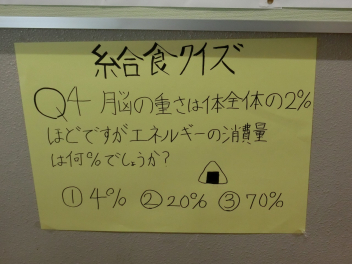 給合食クイズ
Q4 脳の重さは体全体の2%
ほどですがエネルギーの消費量
は何%でしょうか?
① 4% ② 20% ③ 70%